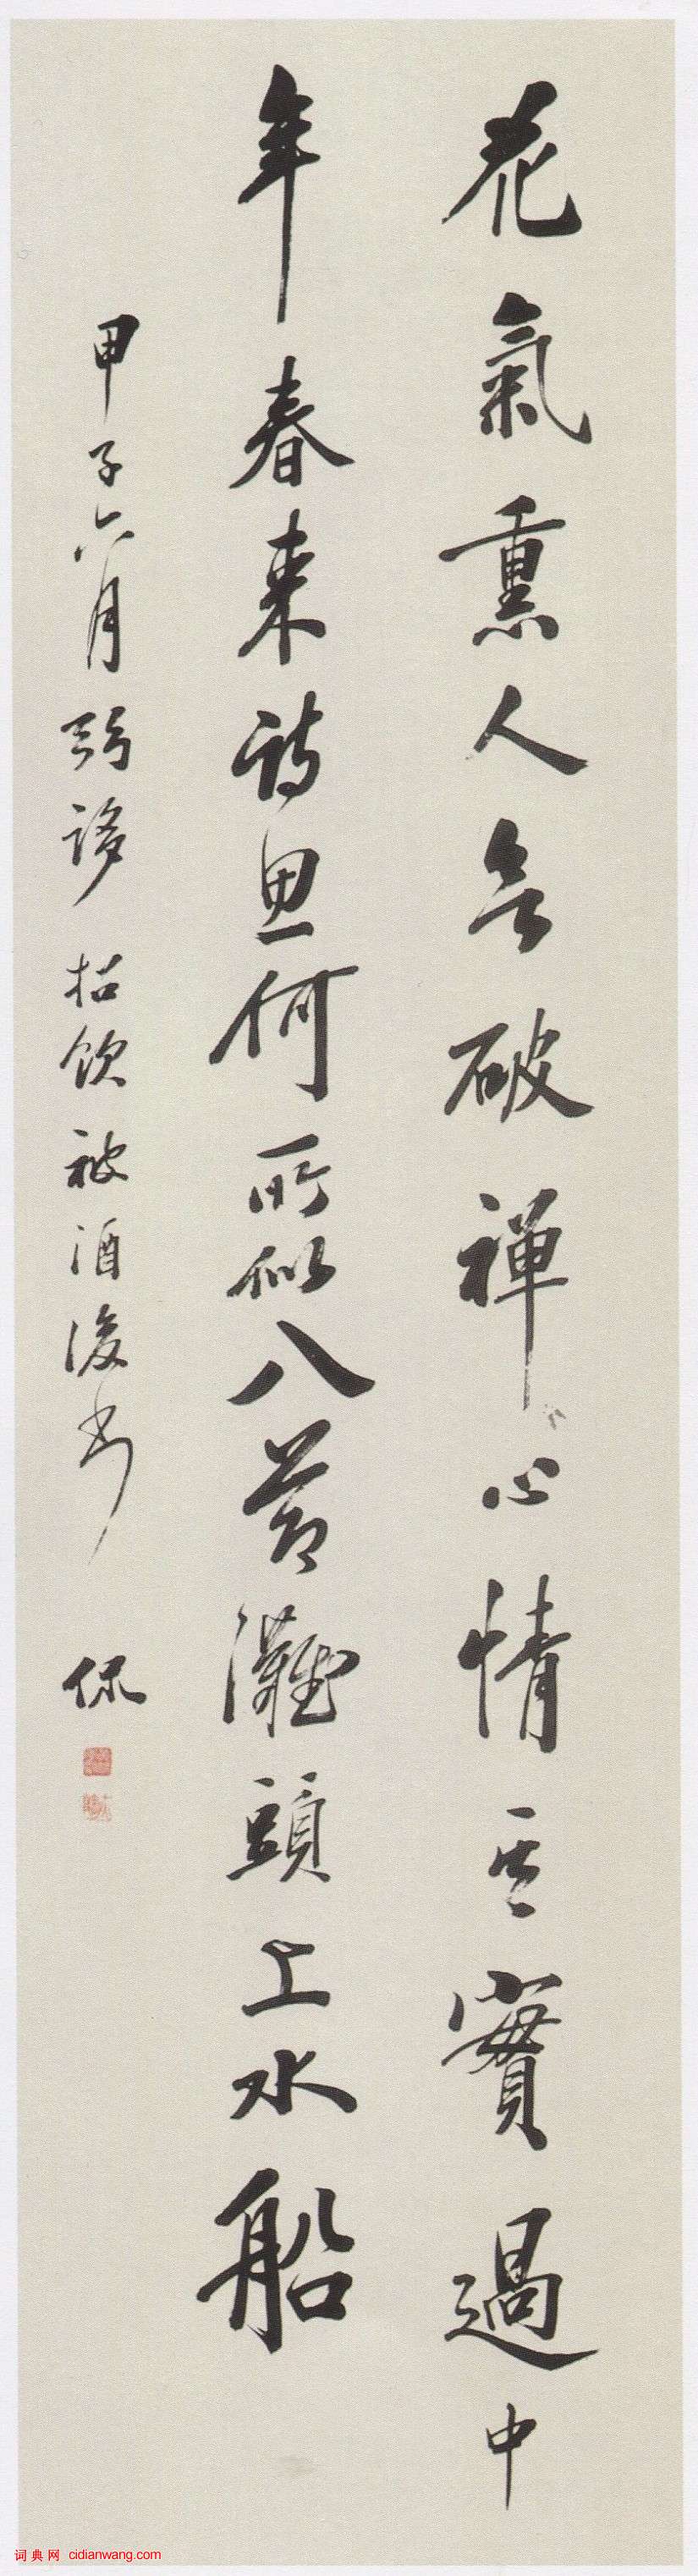 花氣熏人欲破禪心情其實過中
年春来詩思何所似八節灘頭上水船
甲子六月弜誃招飲被酒後書 侃
词典网 cidianwang.com